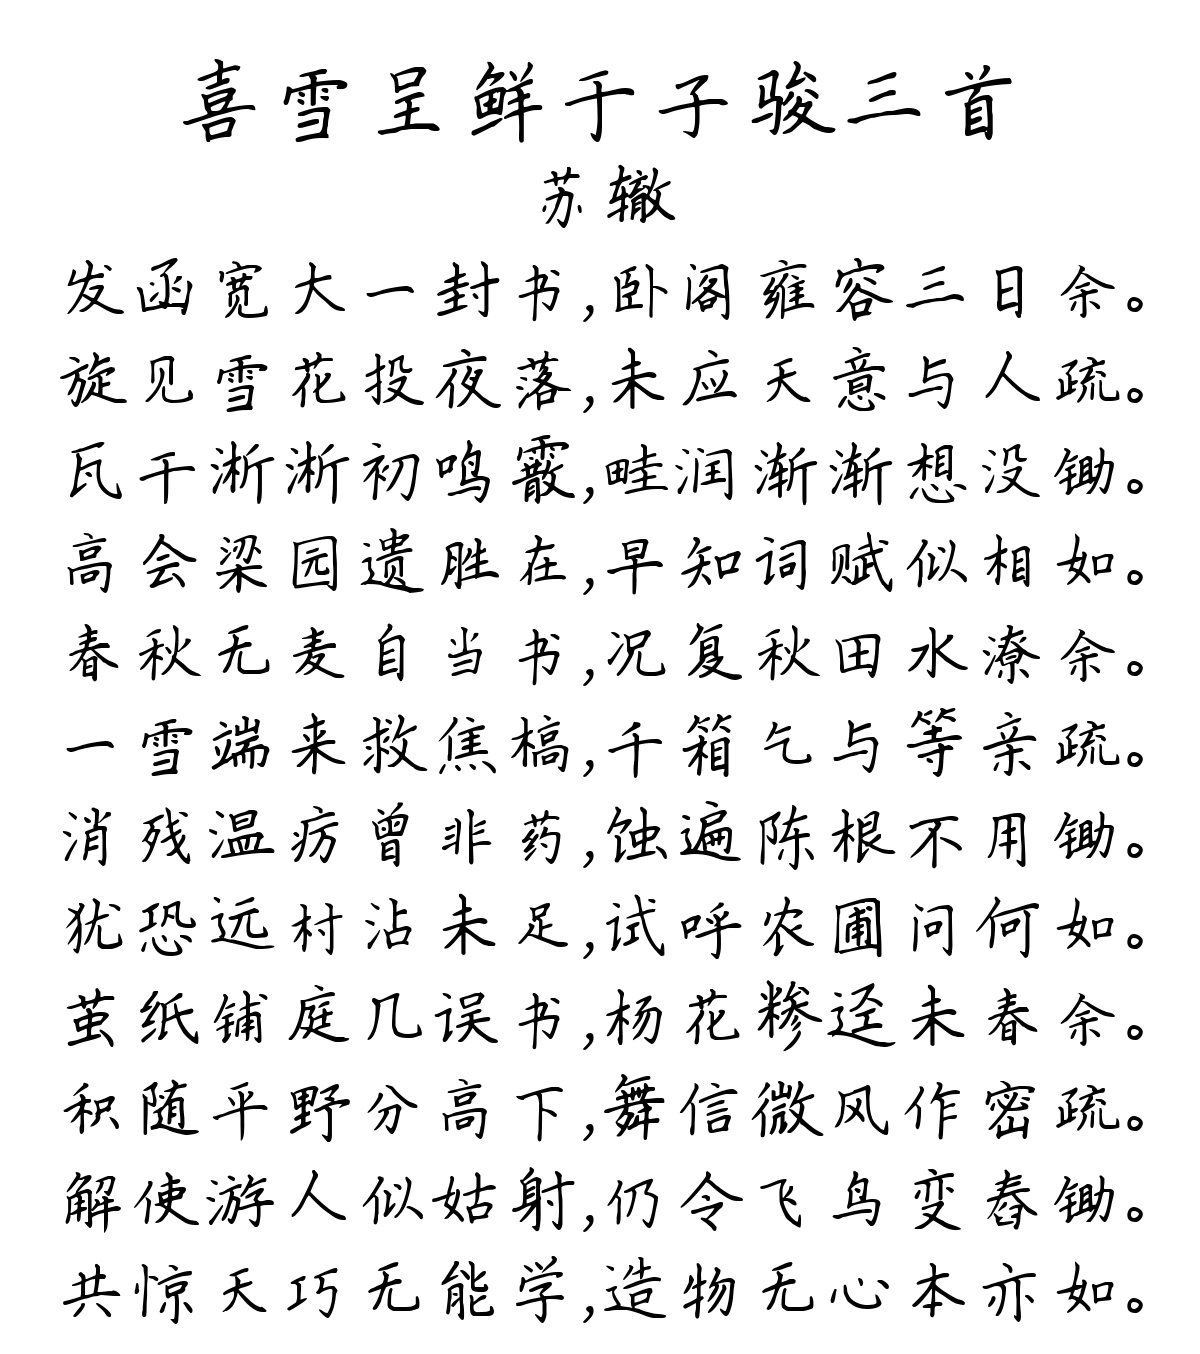 喜雪呈鲜于子骏三首
苏辙
发函宽大一封书,卧阁雍容三日余。
旋见雪花投夜落,未应天意与人疏。
瓦干淅淅初鸣霰,畦润渐渐想没锄。
高会梁园遗胜在,早知词赋似相如。
春秋无麦自当书,况复秋田水潦余。
一雪端来救焦槁,千箱乞与等亲疏。
消残温疠曾非药,蚀遍陈根不用锄。
犹恐远村沾未足,试呼农圃问何如。
茧纸铺庭几误书,杨花糁迳未春余。
积随平野分高下,舞信微风作密疏。
解使游人似姑射,仍令飞鸟变舂锄。
共惊天巧无能学,造物无心本亦如。